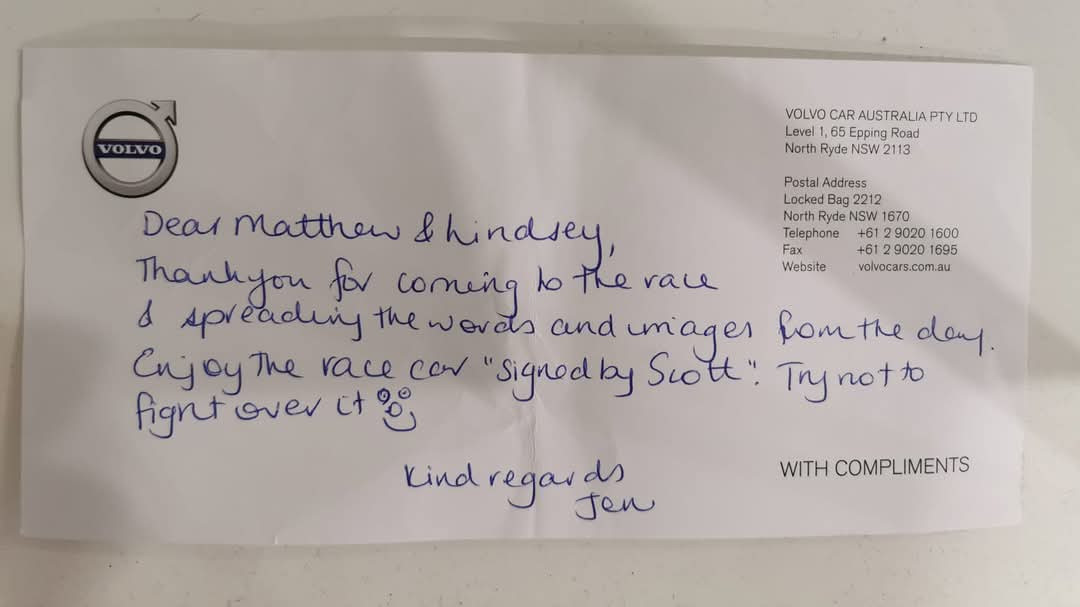 VOLVO
VOLVO CAR AUSTRALIA PTY LTD
Level 1, 65 Epping Road
North Ryde NSW 2113
Postal Address
Locked Bag 2212
North Ryde NSW 1670
Telephone +61 2 9020 1600
Fax +61 2 9020 1695
Website volvocars.com.au
Dear Matthew & Lindsey,
Thankyou for coming to the race
& spreading the words and images from the day.
Enjoy the race car "signed by Scott". Try not to
fight over it
Kind regards
Jen
WITH COMPLIMENTS